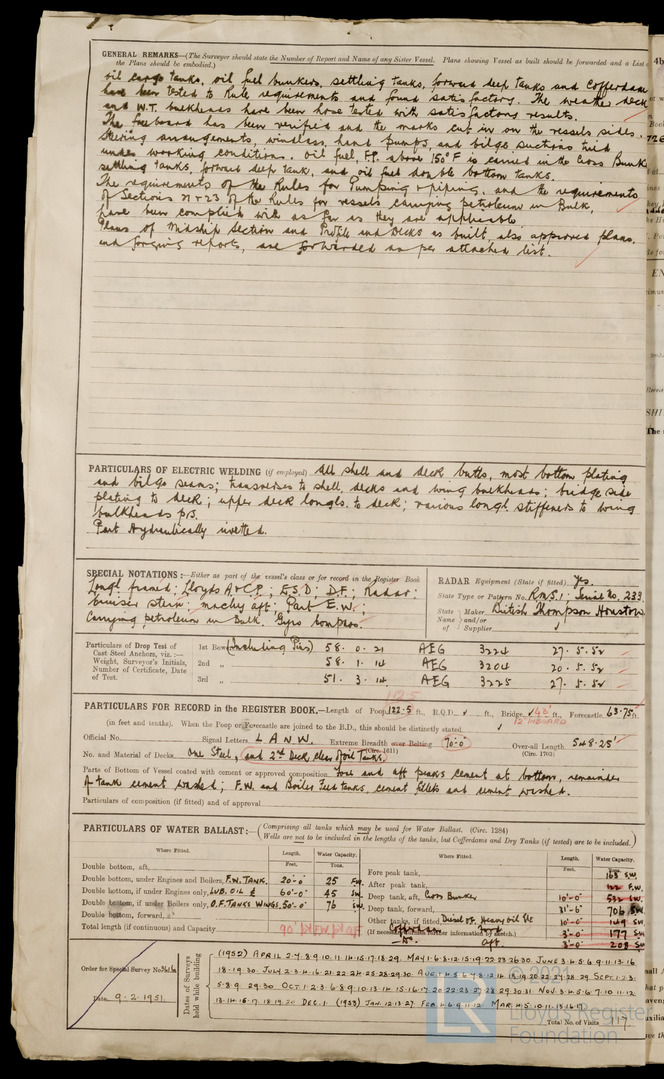 GENERAL REMARKS—(The Surveyor should state the Number of Report and Name of any Sister Vessel. Plans showing Vessel as built should be forwarded and a List of
the Plans should be embodied.)
oil cargo tanks, oil fuel bunkers, settling tanks, forward deep tanks and Cofferdams
have been tested to Rule requirements and found satisfactory. The weather deck
and W.T. bulkheads have been hose tested with satisfactory results.
The freeboard has been verified and the marks cut in on the vessels sides.
Steering arrangements, windlass, hand pumps, and bilge suctions tried
under working conditions. Oil fuel, F.P. above 150°F is carried in the Cross Bunker
settling tanks, forward deep tank, and oil fuel double bottom tanks.
The requirements of the Rules for Pumping & piping, and the requirements
of Sections 21 & 23 of the Rules for vessels carrying petroleum in Bulk,
have been complied with as far as they are applicable
Plans of Midship Section and Profile and Decks as built, also approved plans,
and forging reports, are forwarded as per attached list.
PARTICULARS OF ELECTRIC WELDING (if employed) All shell and deck butts, most bottom plating
and bilge seams; transverses to shell, decks and wing bulkheads; bridge side
plating to deck; upper deck longls. to deck; various longl. stiffeners to wing
bulkheads p/s.
Part Hydraulically rivetted.
SPECIAL NOTATIONS:—Either as part of the vessel's class or for record in the Register Book
Longl. framed; Lloyds A & CP; E.S.D; D.F; Radar;
cruiser stern; machy aft; Part E.W.;
Carrying petroleum in Bulk. Gyro Compass.
RADAR Equipment (State if fitted) Yes.
State Type or Pattern No. R.M.S.1; Serial No. 233
State Name of Maker and/or Supplier British Thompson Houston
Particulars of Drop Test of Cast Steel Anchors, viz.:— Weight, Surveyor's Initials, Number of Certificate, Date of Test.
1st Bower (Including Pins) 58. 0. 21 AEG 3224 27. 5. 52
2nd „ 58. 1. 14 AEG 3204 20. 5. 52
3rd „ 51. 3. 14 AEG 3225 27. 5. 52
125
PARTICULARS FOR RECORD IN THE REGISTER BOOK.—Length of Poop 122.5 ft., R.Q.D. ft., Bridge 48' ft., Forecastle 63.75 ft.
(in feet and tenths). When the Poop or Forecastle are joined to the B.D., this should be distinctly stated.
Official No. Signal Letters L A N W. Extreme Breadth over Belting 70'-0" Over-all Length 548.25'
(Circ. 1611) (Circ. 1703)
No. and Material of Decks One Steel, and 2nd Deck clear of oil Tanks
Parts of Bottom of Vessel coated with cement or approved composition Fore and aft peaks cement at bottom, remainder
of tank cement washed; F.W. and Boiler Feed tanks, cement fillets and cement washed.
Particulars of composition (if fitted) and of approval
PARTICULARS OF WATER BALLAST:—(Comprising all tanks which may be used for Water Ballast. (Circ. 1284)
Wells are not to be included in the lengths of the tanks, but Cofferdams and Dry Tanks (if tested) are to be included.)
Where Fitted. Length. Feet. Water Capacity. Tons.
Double bottom, aft,
Double bottom, under Engines and Boilers, F.W. TANK. 20'-0" 25 F.W.
Double bottom, if under Engines only, LUB. OIL & 60'-0" 45 S.W.
Double bottom, if under Boilers only, O.F. TANKS WINGS. 50'-0" 76 S.W.
Double bottom, forward,
Total length (if continuous) and Capacity
Where Fitted. Length. Feet. Water Capacity.
Fore peak tank, 168 S.W.
After peak tank, 122 F.W.
Deep tank, aft, Cross Bunker 10'-0" 532 S.W.
Deep tank, forward, 31'-6" 706 S.W.
Other tanks, if fitted, Diesel of Heavy Oil 10'-0" 149 S.W.
(If necessary furnish further information by sketch.) Cofferdam Fwd 3'-0" 177 S.W.
Do. aft 3'-0" 208 S.W.
Order for Special Survey No.
Date 9.2.1951.
Dates of Surveys held while building
(1952) APRIL 2.7.8.9.10.11.14.15.17.18.29. MAY 1.6.8.12.15.19.22.23.26.30 JUNE 3.4.5.6.9.11.13.16
18.19.30 JULY 2.3.4.16.21.22.24.25.28.29.30
5.8.9.29.30 OCT. 1.2.3.6.8.9.10.13.14.15.16.17
13.14.15.17.18.19.20 DEC. 1 (1953) JAN. 12.13.27 FEB 4.6.9.11.12 MAR 4.5.10.11.13.16.17
Total No. of Visits 117
© 2021
Lloyd's Register
Foundation